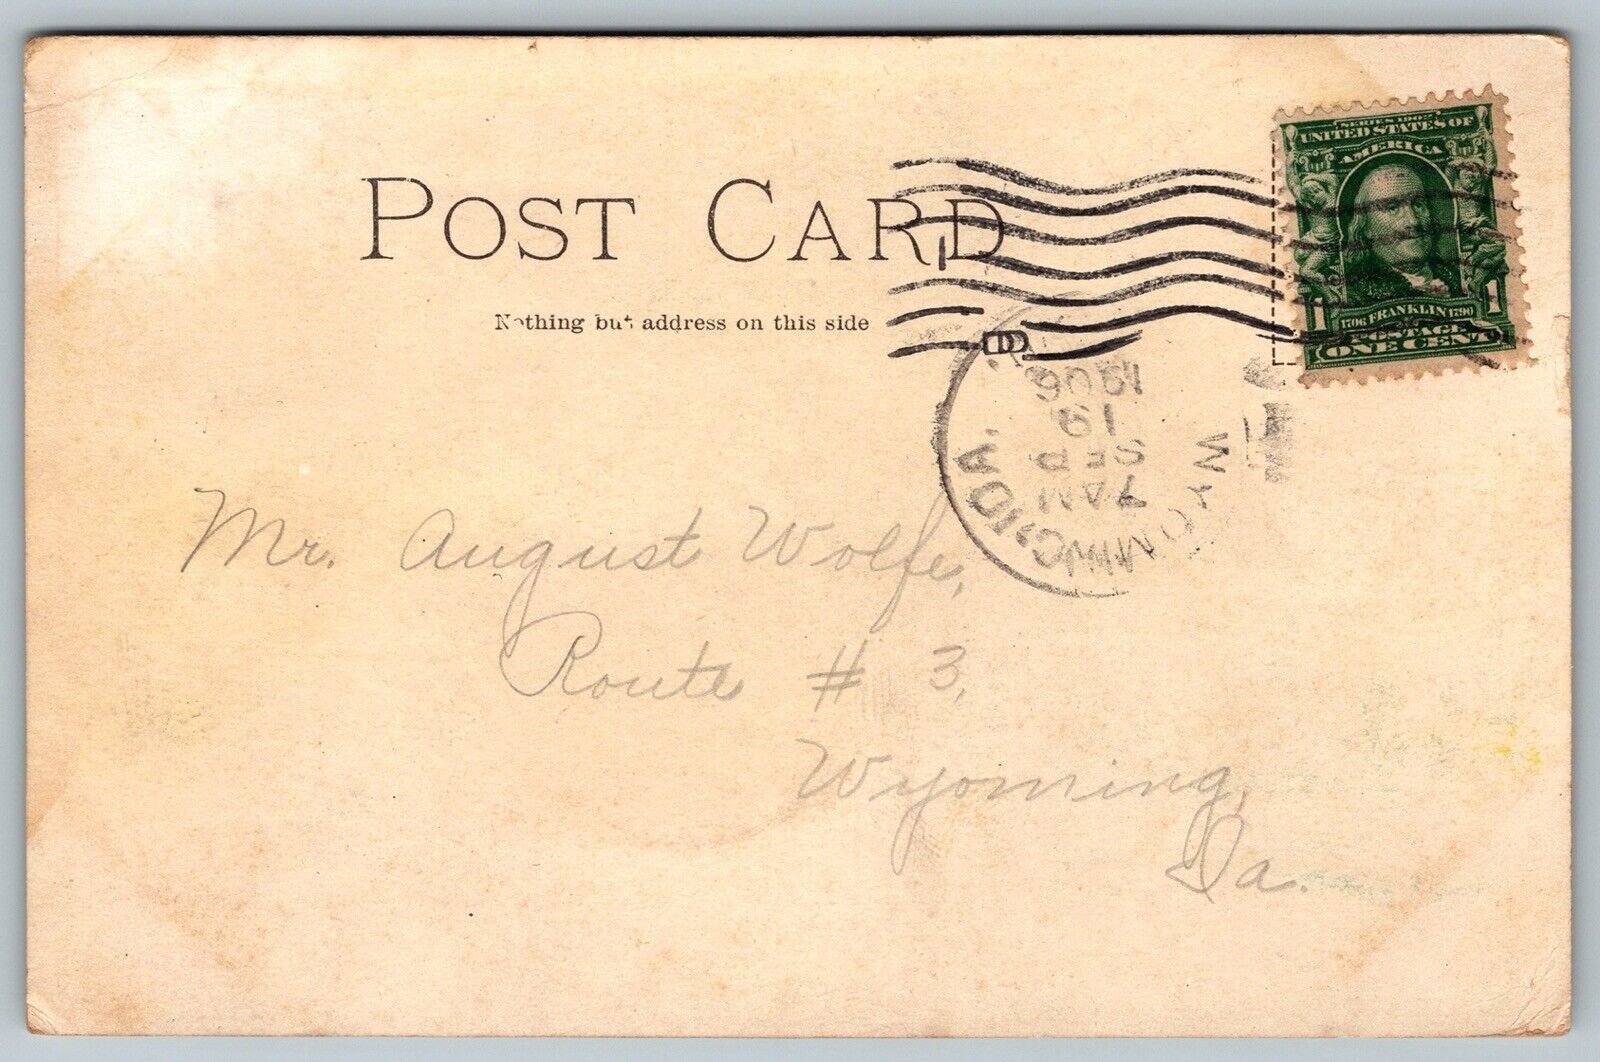 POST CARD
Nothing but address on this side
SERIES 1902
UNITED STATES OF
AMERICA
1 1
1706 FRANKLIN 1790
POSTAGE
ONE CENT
WYOMING, IOA.
7 AM
SEP
19
1906
Mr. August Wolfe,
Route # 3,
Wyoming,
Ia.